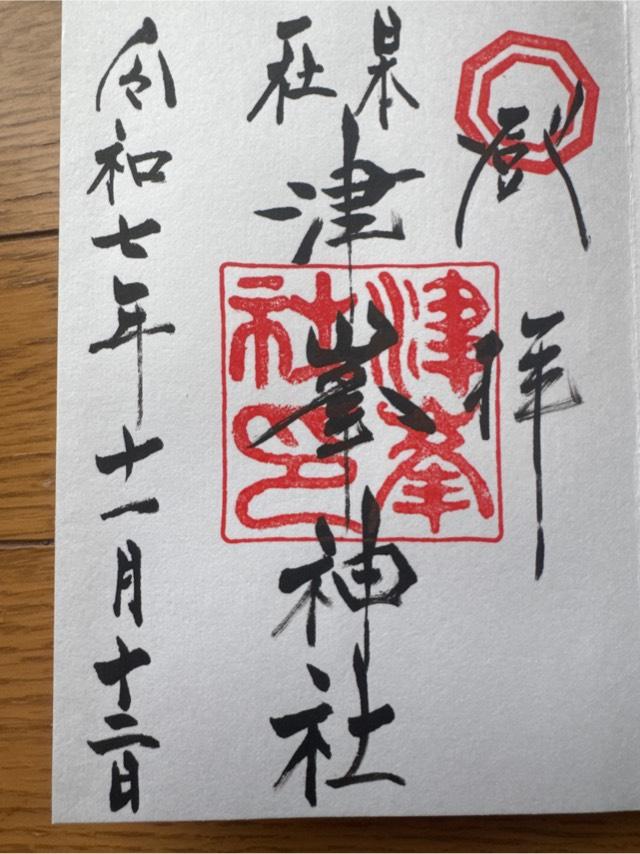 登拝
県社
津峯神社
津峯
社印
令和七年十一月十二日